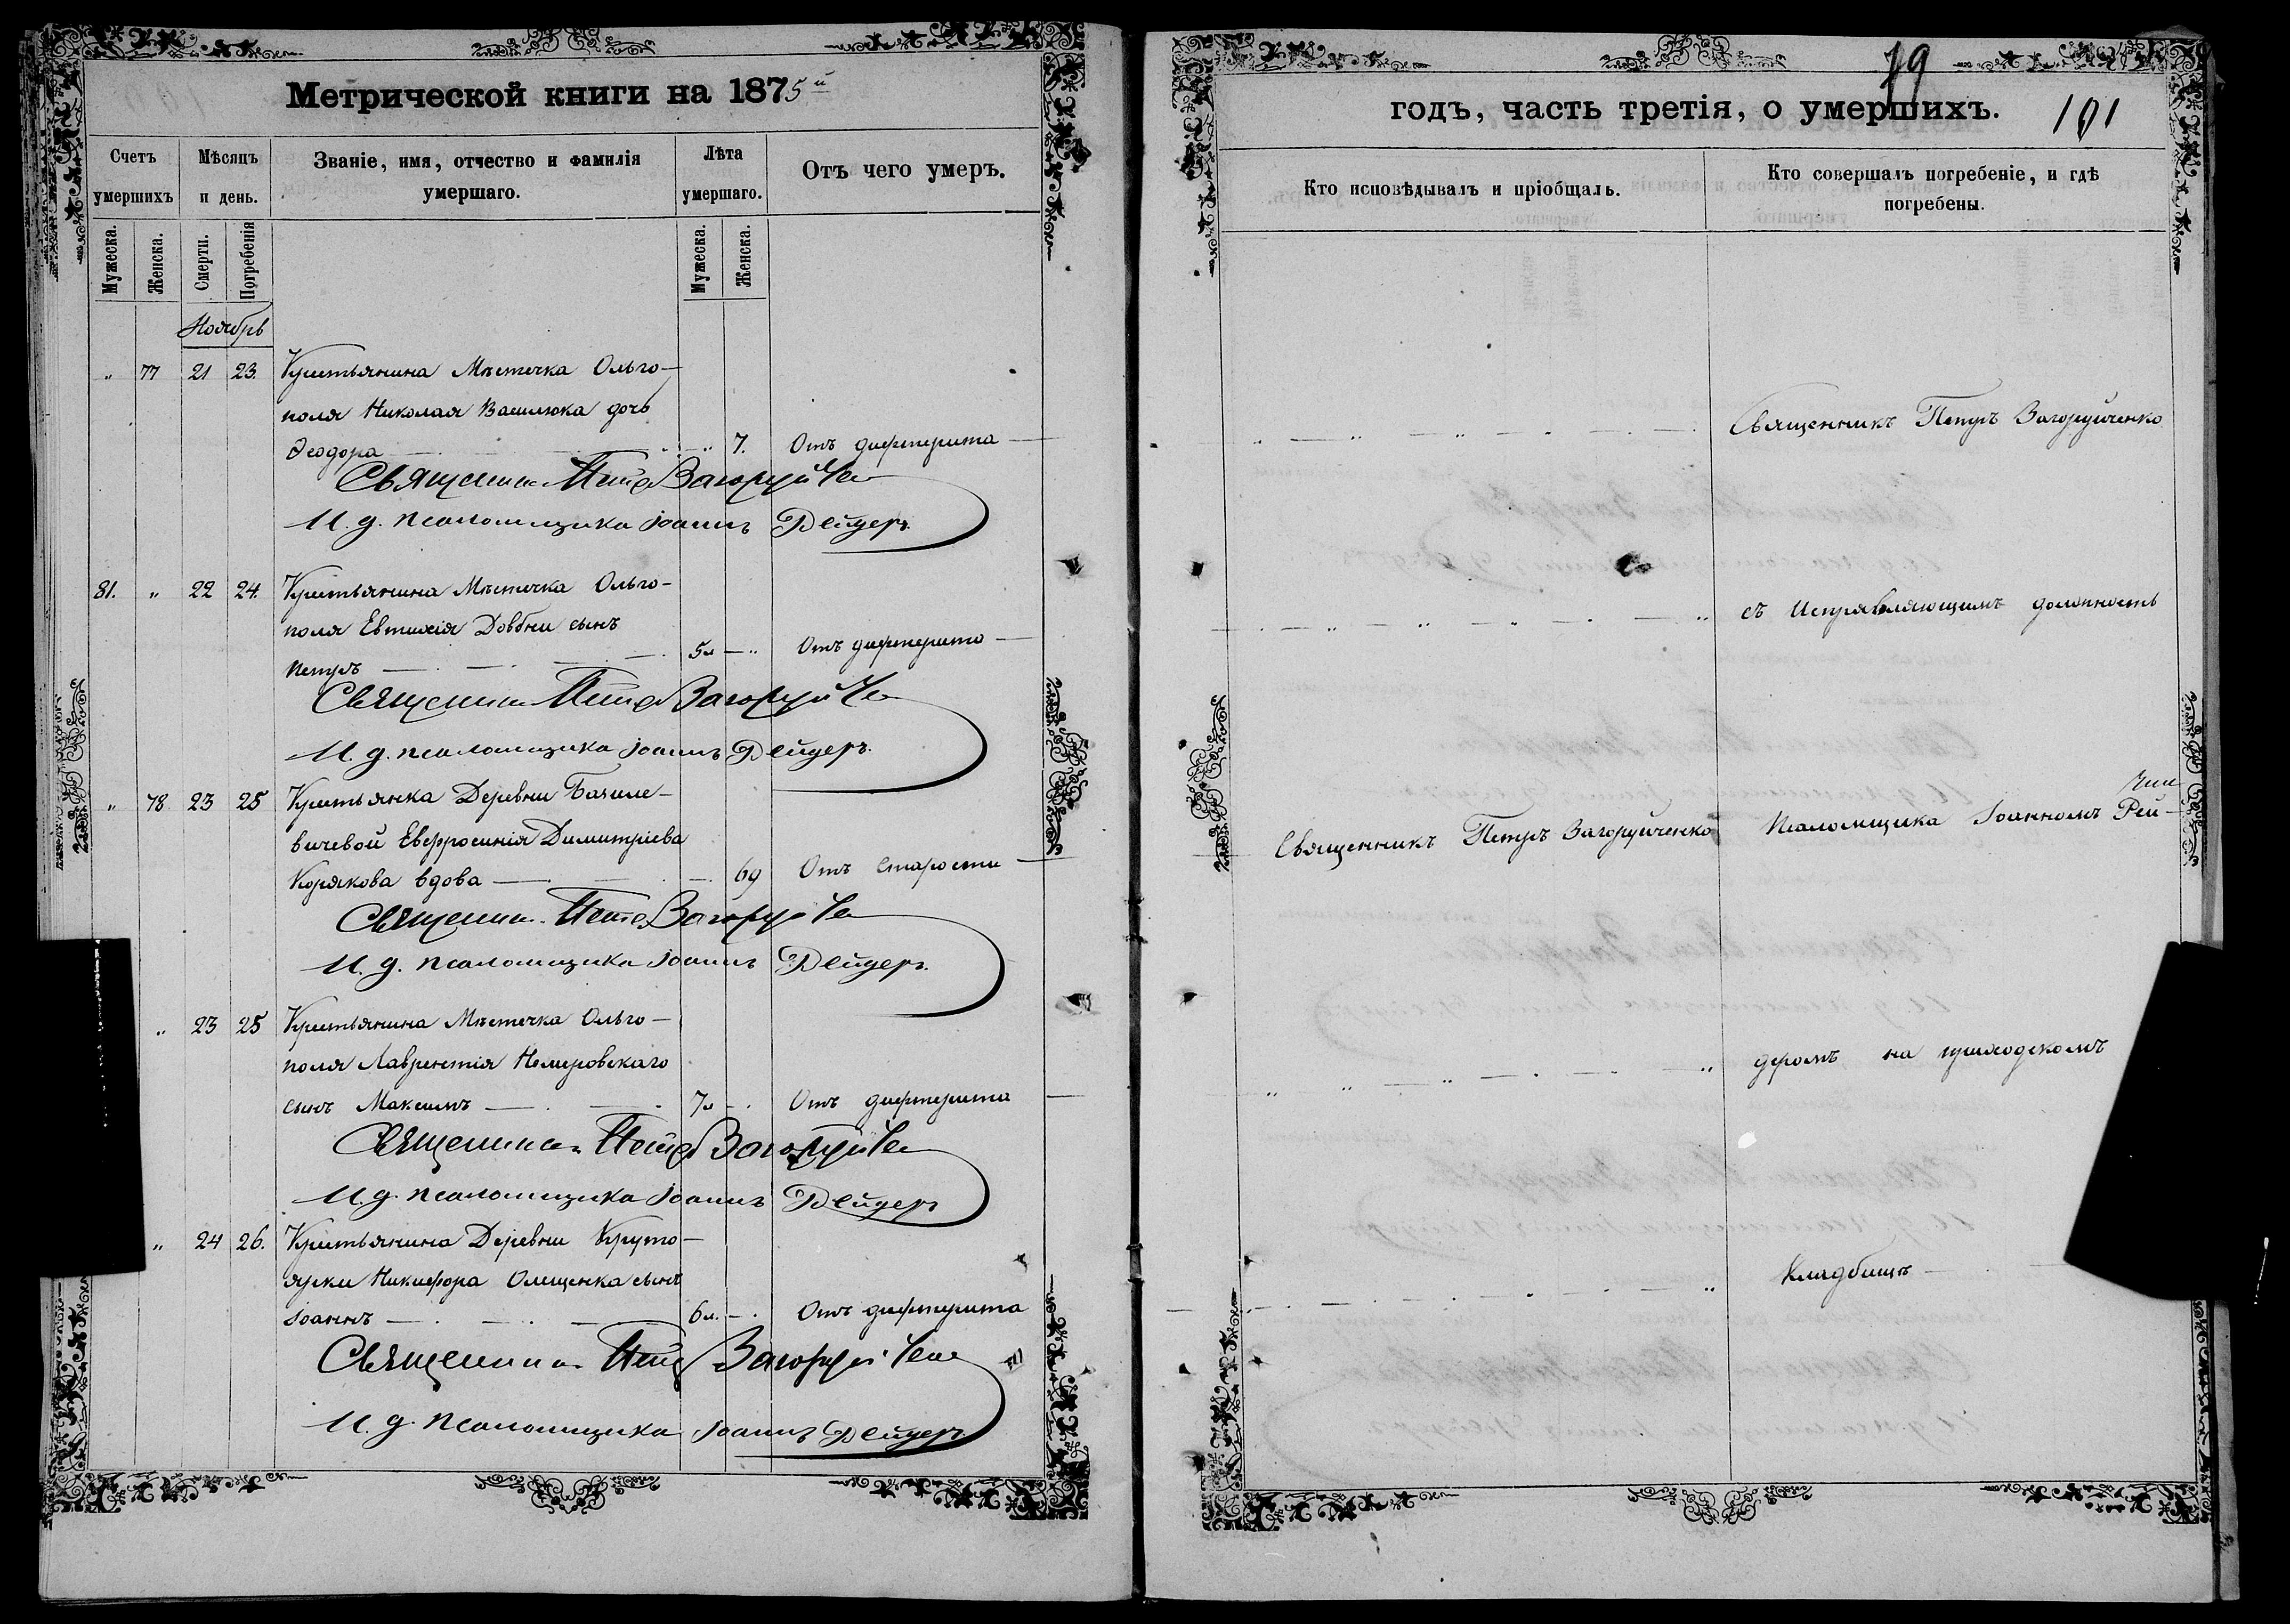 Метрической книги на 1875й
Счетъ умершихъ
Мѣсяцъ и день.
Званіе, имя, отчество и фамилія умершаго.
Лѣта умершаго.
Отъ чего умеръ.
Мужеска.
Женска.
Смерти.
Погребенія
Мужеска.
Женска.
Ноябрь
" 77 21 23. Крестьянина Мѣстечка Ольго-
поля Николая Василюка дочь
Ѳеодора " 7. Отъ дифтерита
Священникъ Петръ Загоруйченко
И. д. псаломщика Іоаннъ Рейдеръ.
81. " 22 24. Крестьянина Мѣстечка Ольго-
поля Евтихія Довбни сынъ
Петръ 5л " Отъ дифтерита
Священникъ Петръ Загоруйченко
И. д. псаломщика Іоаннъ Рейдеръ.
" 78 23 25 Крестьянка Деревни Бачиле-
вичевой Евфросинія Димитріева
Корякова вдова 69 Отъ старости
Священникъ Петръ Загоруйченко
И. д. псаломщика Іоаннъ Рейдеръ.
" 23 25 Крестьянина Мѣстечка Ольго-
поля Лаврентія Немировскаго
сынъ Максимъ 7л Отъ дифтерита
Священникъ Петръ Загоруйченко
И. д. псаломщика Іоаннъ Рейдеръ
" 24 26. Крестьянина Деревни Круто-
ярки Никифора Олещенка сынъ
Іоаннъ 6л. Отъ дифтерита
Священникъ Петръ Загоруйченко
И. д. псаломщика Іоаннъ Рейдеръ
79
годъ, часть третія, о умершихъ. 101
Кто исповѣдывалъ и пріобщалъ.
Кто совершалъ погребеніе, и гдѣ погребены.
Священникъ Петръ Загоруйченко
съ Исправляющимъ должность
Священникъ Петръ Загоруйченко Псаломщика Іоанномъ Рей-
деромъ на приходскомъ
Кладбищѣ